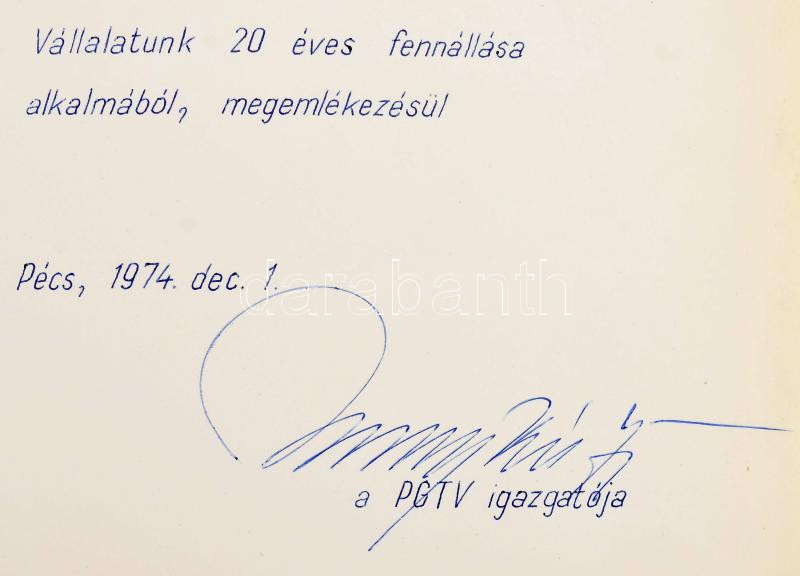 Vállalatunk 20 éves fennállása
alkalmából, megemlékezésül
Pécs, 1974. dec. 1.
darabanth
a PGTV igazgatója